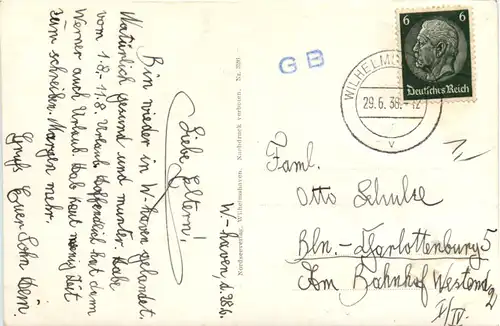 W-haven d. 28.6.
Liebe Eltern!
Bin wieder in W-haven gelandet.
Natürlich gesund und munter. Habe
vom 1.8.-11.8. Urlaub. Hoffendlich hat dem
Werner auch Urlaub. Hab heut wenig Zeit
zum schreiben. Morgen mehr.
Gruß Euer Sohn
Nordseeverlag, Wilhelmshaven. Nachdruck verboten. Nr.
GB
WILHELMS
29.6.36.-12
v
6 6
Deutsches Reich
Faml.
Otto Schulze
Bln.-Charlottenburg 5
Am Bahnhof Westend 2
I/IV.